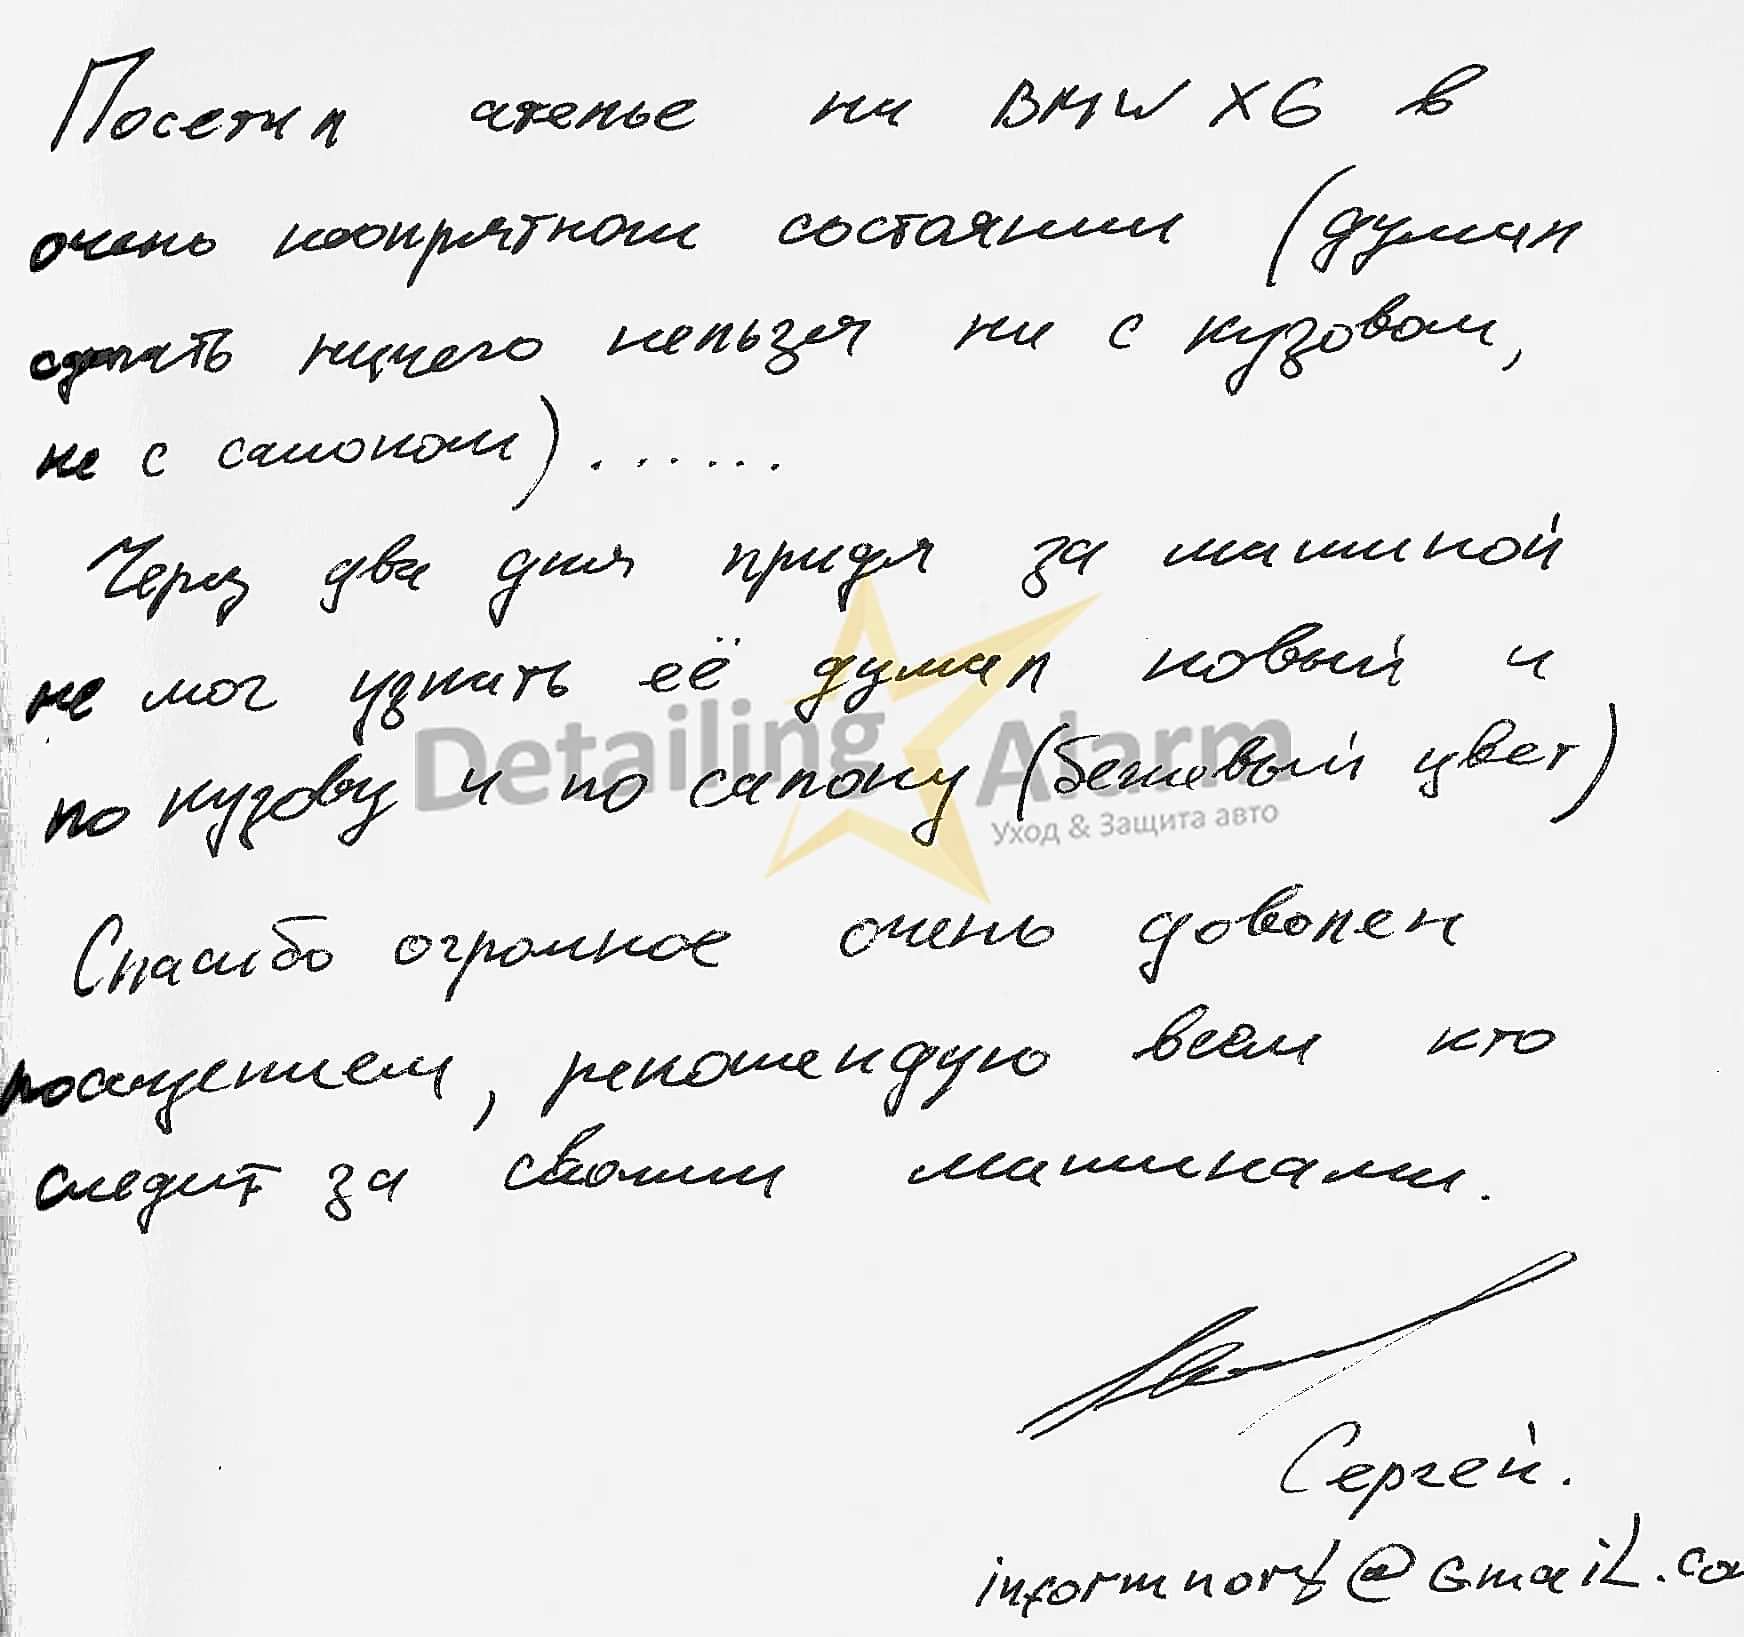 Посетил ателье на BMW X6 в
очень неопрятном состоянии (думал
сделать ничего нельзя ни с кузовом,
не с салоном)......
Через два дня придя за машиной
не мог узнать её думал новый и
по кузову и по салону (бежевый цвет)
Detailing Alarm
Уход & Защита авто
Спасибо огромное очень доволен
посещением, рекомендую всем кто
следит за своими машинами.
Сергей.
@Gmail.co